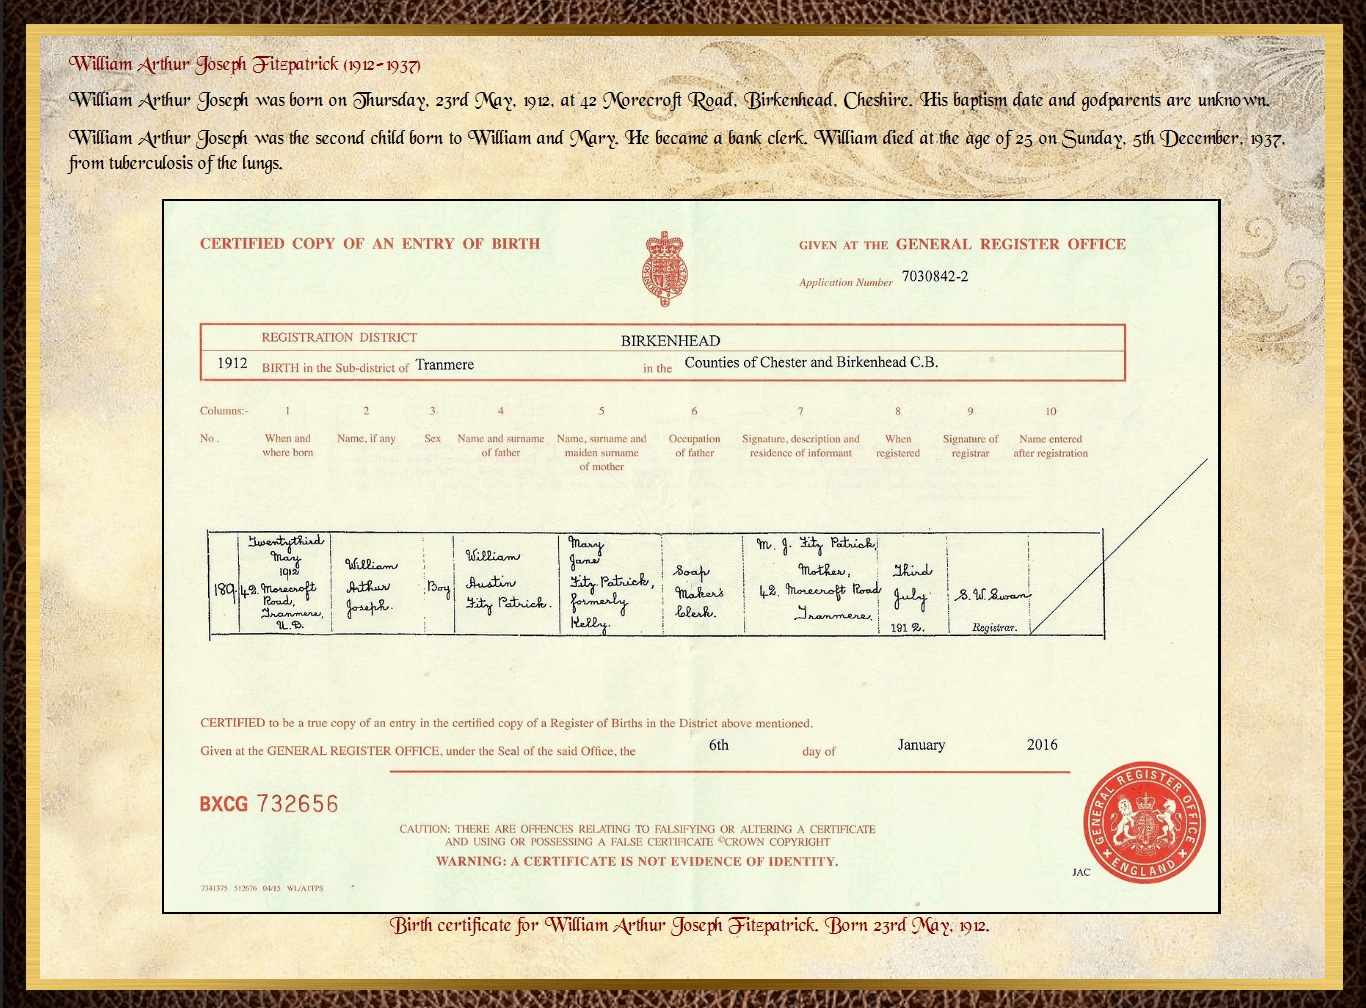 William Arthur Joseph Fitzpatrick (1912-1937)
William Arthur Joseph was born on Thursday, 23rd May, 1912, at 42 Morecroft Road, Birkenhead, Cheshire. His baptism date and godparents are unknown.
William Arthur Joseph was the second child born to William and Mary. He became a bank clerk. William died at the age of 25 on Sunday, 5th December, 1937,
from tuberculosis of the lungs.
CERTIFIED COPY OF AN ENTRY OF BIRTH
GIVEN AT THE GENERAL REGISTER OFFICE
Application Number 7030842-2
REGISTRATION DISTRICT BIRKENHEAD
1912 BIRTH in the Sub-district of Tranmere in the Counties of Chester and Birkenhead C.B.
Columns:- 1 2 3 4 5 6 7 8 9 10
No. When and Name, if any Sex Name and surname Name, surname and Occupation Signature, description and When Signature of Name entered
where born of father maiden surname of father residence of informant registered registrar after registration
of mother
189.
Twentythird
May
1912
42. Morecroft
Road,
Tranmere,
U.D.
William
Arthur
Joseph.
Boy
William
Austin
Fitz Patrick.
Mary
Jane
Fitz Patrick,
formerly
Kelly.
Soap
Makers
Clerk.
M. J. Fitz Patrick,
Mother,
42. Morecroft Road
Tranmere.
Third
July
1912.
S. W. Swan
Registrar.
CERTIFIED to be a true copy of an entry in the certified copy of a Register of Births in the District above mentioned.
Given at the GENERAL REGISTER OFFICE, under the Seal of the said Office, the 6th day of January 2016
BXCG 732656
CAUTION: THERE ARE OFFENCES RELATING TO FALSIFYING OR ALTERING A CERTIFICATE
AND USING OR POSSESSING A FALSE CERTIFICATE ©CROWN COPYRIGHT
WARNING: A CERTIFICATE IS NOT EVIDENCE OF IDENTITY.
GENERAL REGISTER OFFICE
ENGLAND
JAC
7341375 512676 04/15 WL/AITPS
Birth certificate for William Arthur Joseph Fitzpatrick. Born 23rd May, 1912.